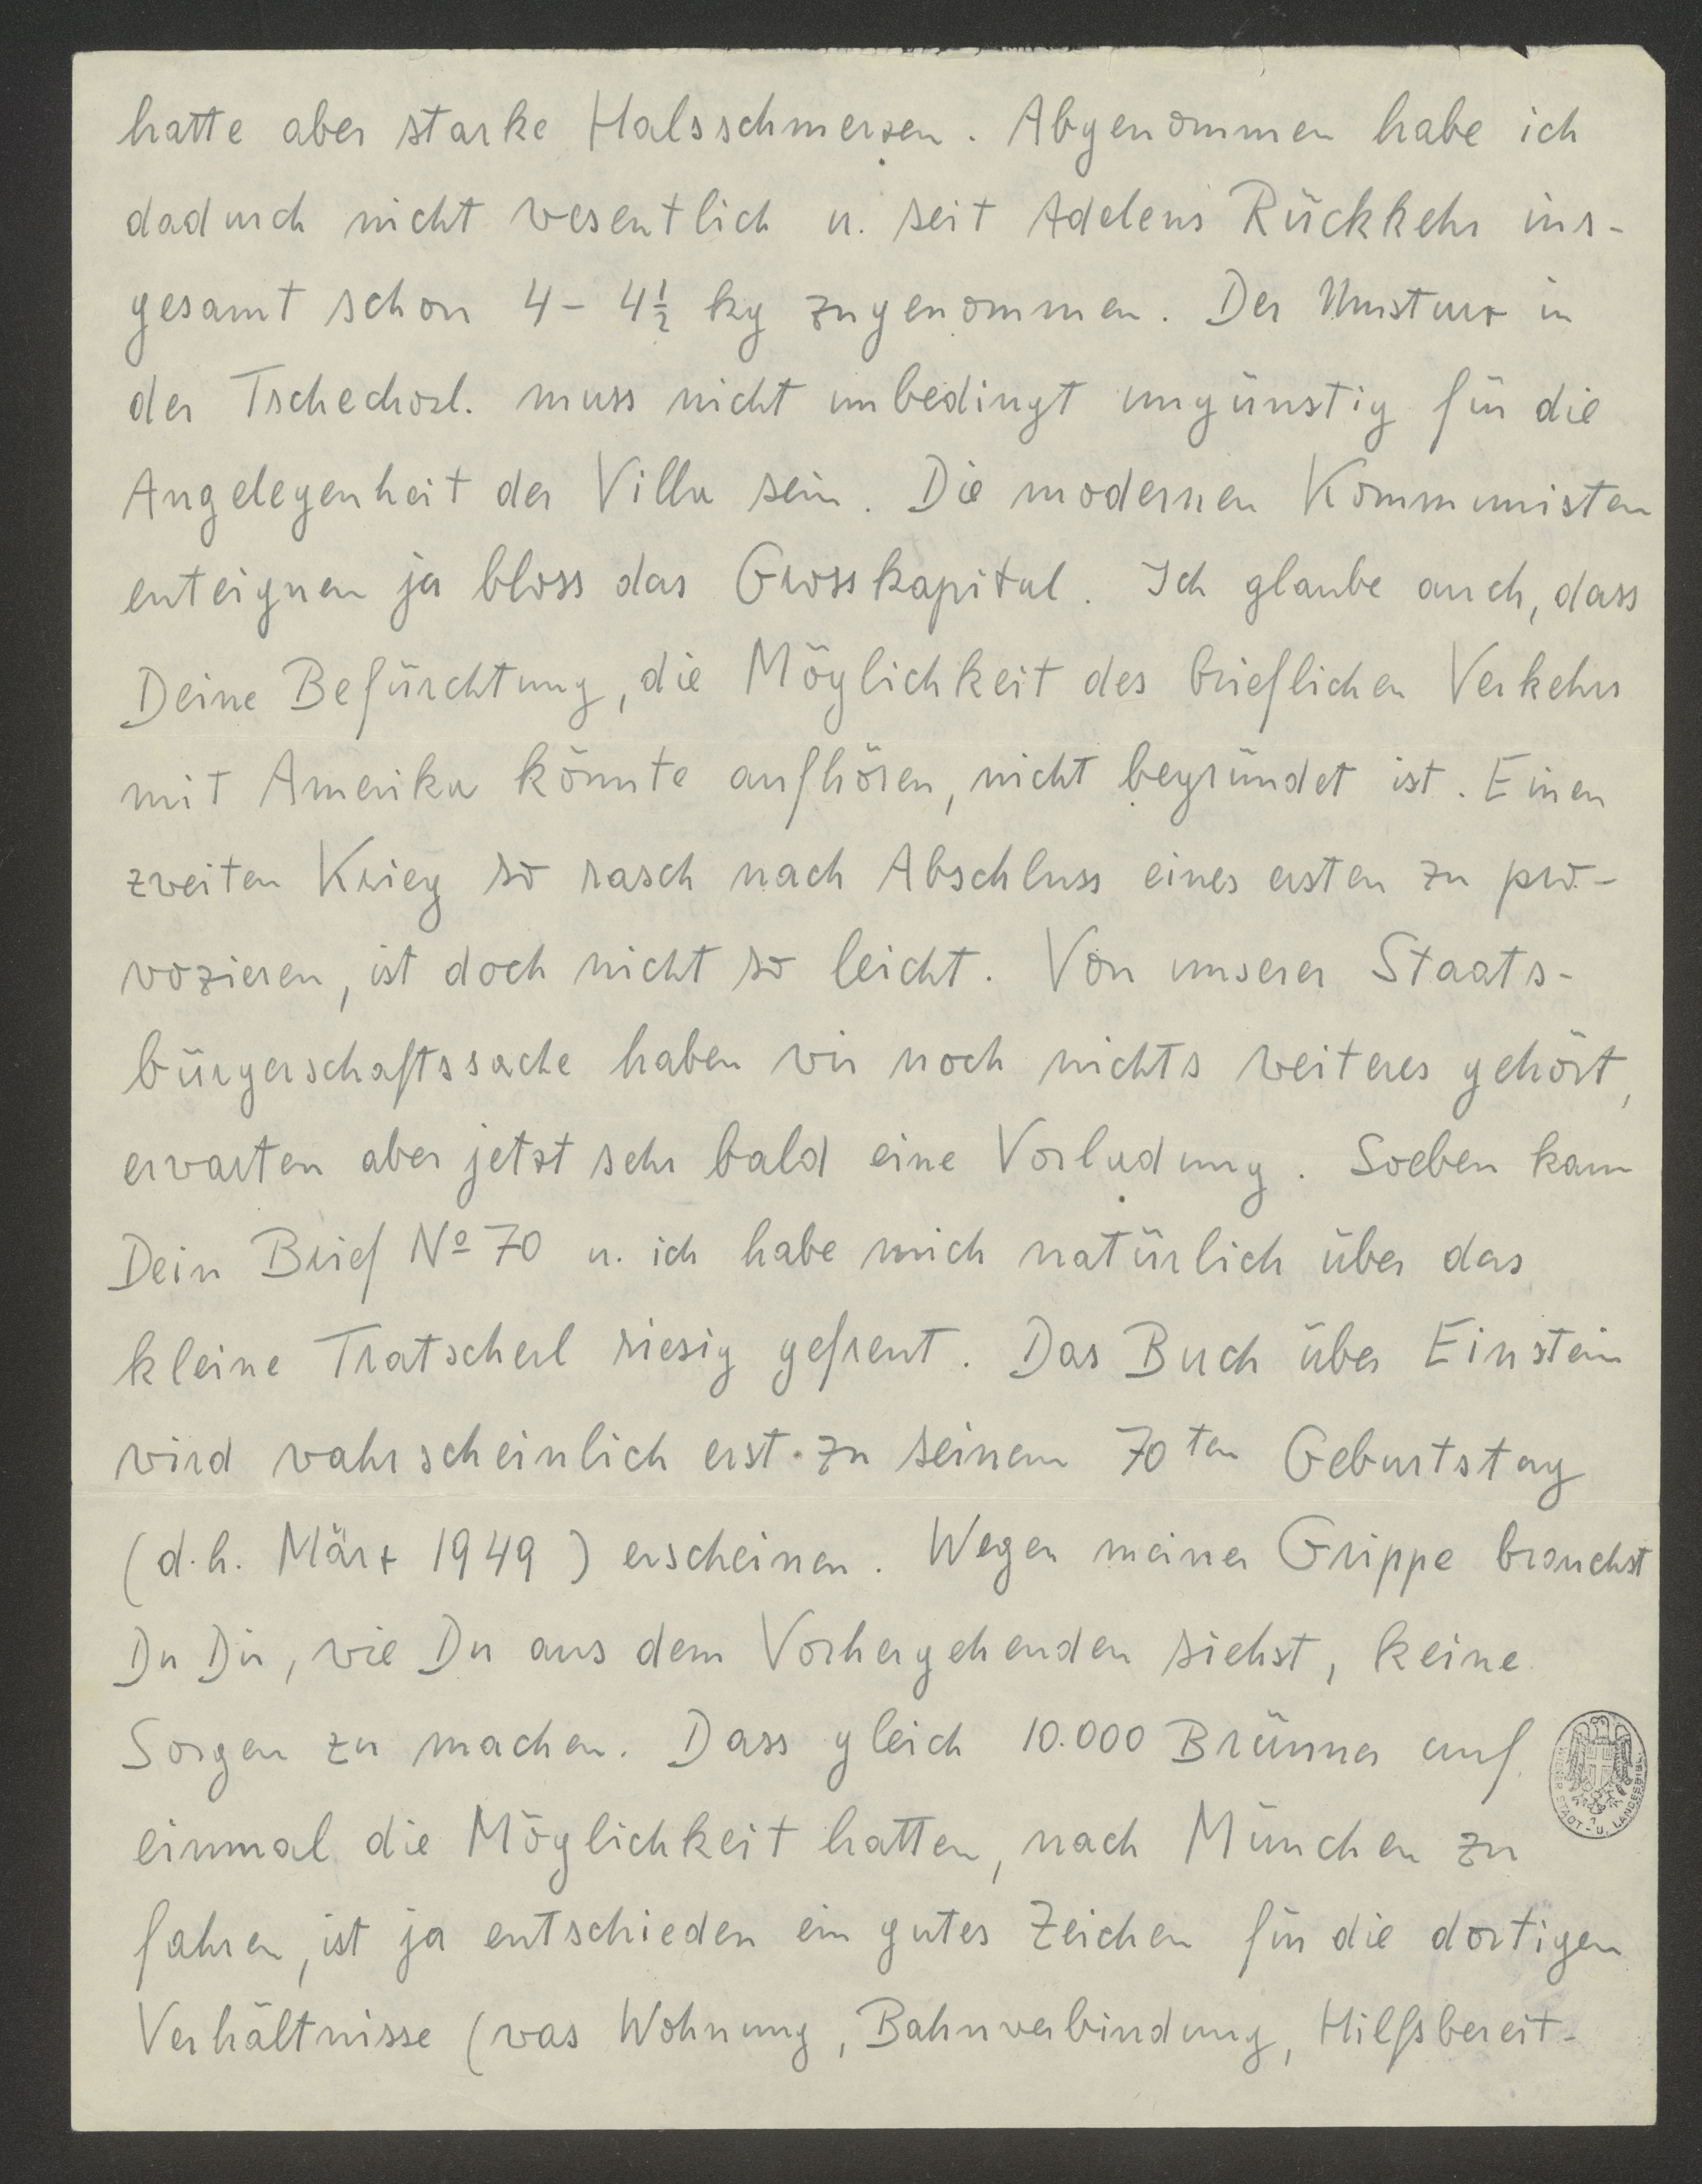 hatte aber starke Halsschmerzen. Abgenommen habe ich
dadurch nicht wesentlich u. seit Adelens Rückkehr ins-
gesamt schon 4 – 4½ kg zugenommen. Der Umsturz in
der Tschechosl. muss nicht unbedingt ungünstig für die
Angelegenheit der Villa sein. Die modernen Kommunisten
enteignen ja bloss das Grosskapital. Ich glaube auch, dass
Deine Befürchtung, die Möglichkeit des brieflichen Verkehrs
mit Amerika könnte aufhören, nicht begründet ist. Einen
zweiten Krieg so rasch nach Abschluss eines ersten zu pro-
vozieren, ist doch nicht so leicht. Von unserer Staats-
bürgerschaftssache haben wir noch nichts weiteres gehört,
erwarten aber jetzt sehr bald eine Vorladung. Soeben kam
Dein Brief Nº 70 u. ich habe mich natürlich über das
kleine Tratscherl riesig gefreut. Das Buch über Einstein
wird wahrscheinlich erst zu seinem 70ten Geburtstag
(d.h. März 1949) erscheinen. Wegen meiner Grippe brauchst
Du Dir, wie Du aus dem Vorhergehenden siehst, keine
Sorgen zu machen. Dass gleich 10.000 Brünner auf
einmal die Möglichkeit hatten, nach München zu
fahren, ist ja entschieden ein gutes Zeichen für die dortigen
Verhältnisse (was Wohnung, Bahnverbindung, Hilfsbereit-
WIENER STADT- U. LANDESBIBL.